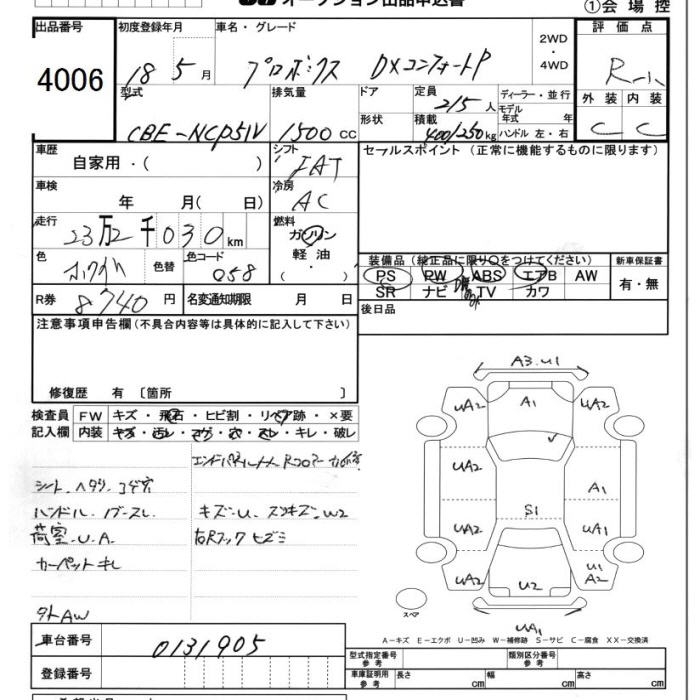 オークション出品申込書
①会場控
出品番号 初度登録年月 車名・グレード 2WD・4WD 評価点
4006 18年5月 プロボックス DXコンフォートP R-1
外装 内装
C C
型式 排気量 ドア 定員 ディーラー・並行
CBE-NCP51V 1500cc 2/5人 モデル年式 年式
形状 積載 400/250kg ハンドル 左・右
車歴 自家用・( ) シフト FAT セールスポイント(正常に機能するものに限ります)
車検 年 月( 日) 冷房 AC
走行 23万2千030km 燃料 ガソリン・軽油・( )
色 ホワイト 色替 色コード 058
装備品(純正品に限り○をつけてください) 新車保証書
PS PW ABS エアB AW 有・無
SR ナビ TV カワ
R券 8740円 名変通知期限 月 日
後日品
注意事項申告欄(不具合内容等は具体的に記入して下さい)
修復歴 有 〔箇所 〕
検査員 FW キズ・飛石・ヒビ割・リペア跡・×要
記入欄 内装 キズ・汚レ・コゲ・穴・スレ・キレ・破レ
シート.ヘタリ.コゲ穴
ハンドル.ノブスレ キズ.U.スリキズ.W2
荷室.U.A
カーペットキレ
外AW
A3.U1
UA2 A1 UA2
UA2 A1
S1
UA2 UA1
UA2 U2 U1 A2
UA1
スペア
A-キズ E-エクボ U-凹み W-補修跡 S-サビ C-腐食 XX-交換済
車台番号 0131905
型式指定番号 参考 類別区分番号 参考
登録番号 車庫証明用 参考 長さ cm 幅 cm 高さ cm